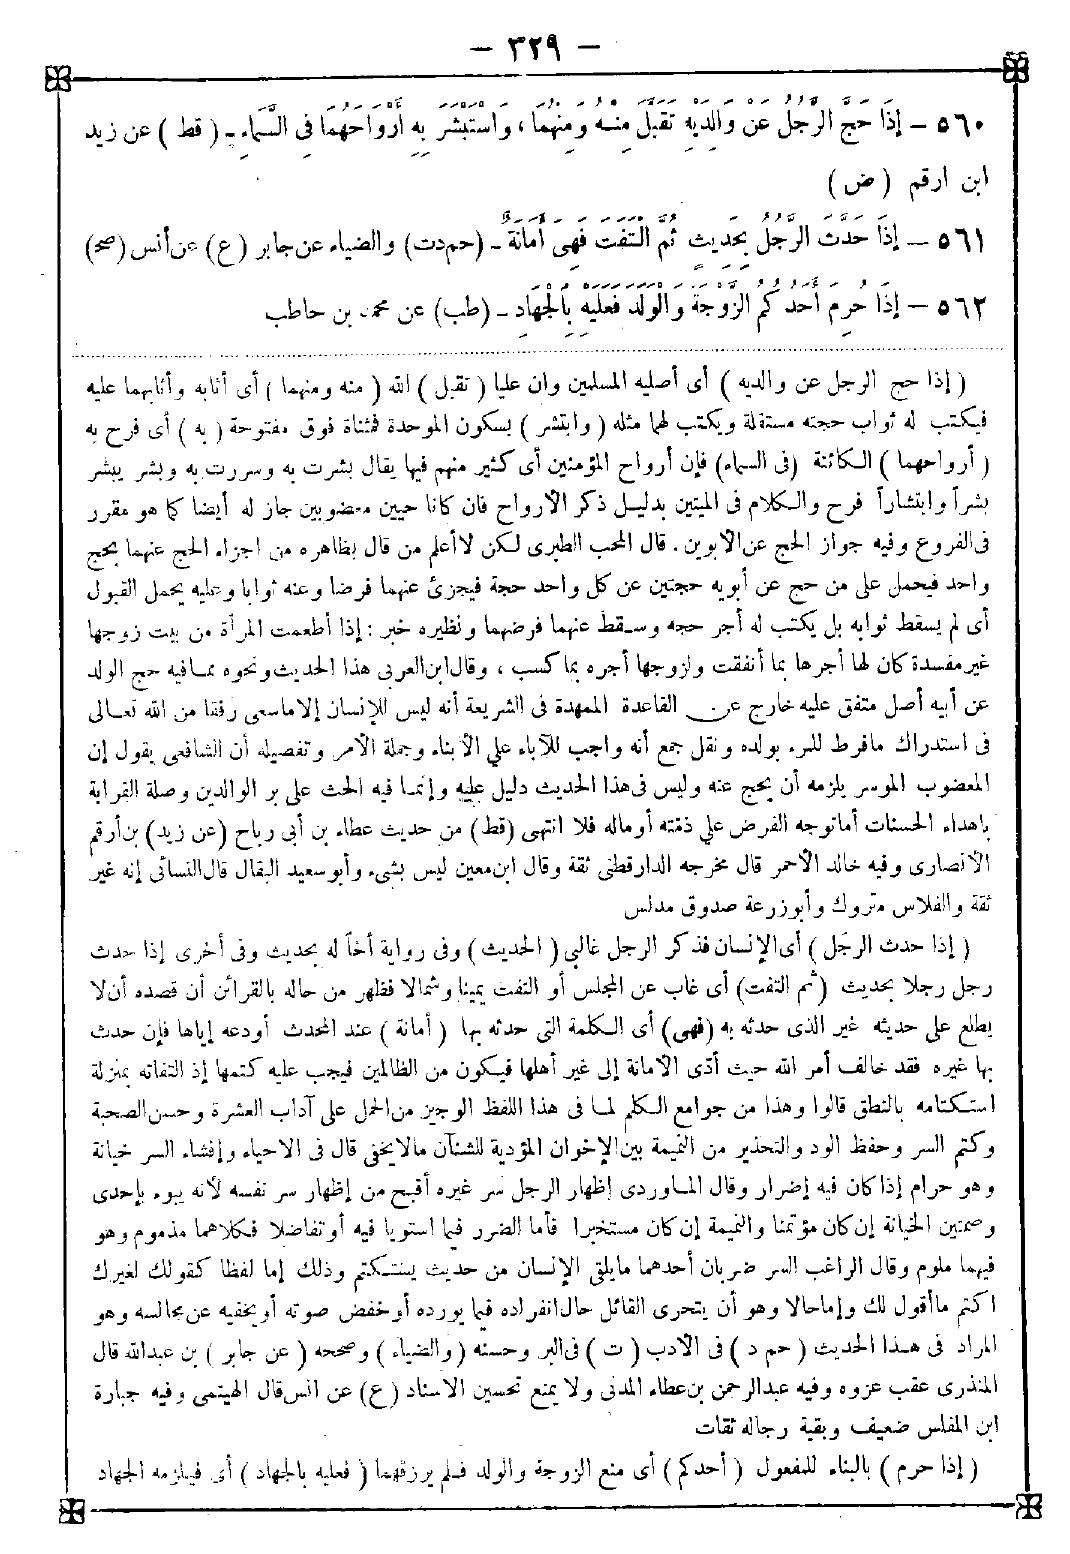 – ٣٢٩ –
٥٦٠ – إِذَا حَجَّ الرَّجُلُ عَنْ وَالِدَيْهِ تَقَبَّلَ مِنْهُ وَمِنْهُمَا، وَاسْتَبْشَرَ بِهِ أَرْوَاحُهُمَا فِى السَّمَاءِ - ( قط ) عن زيد
ابن ارقم ( ض )
٥٦١ – إِذَا حَدَّثَ الرَّجُلُ بِحَدِيثٍ ثُمَّ الْتَفَتَ فَهِىَ أَمَانَةٌ - (حم د ت) والضياء عن جابر (ع) عن أنس (صح)
٥٦٢ – إِذَا حُرِمَ أَحَدُكُمُ الزَّوْجَةَ وَالْوَلَدَ فَعَلَيْهِ بِالْجِهَادِ - (طب) عن محمد بن حاطب
( إذا حج الرجل عن والديه ) أى أصليه المسلمين وان عليا ( تقبل ) الله ( منه ومنهما ) أى أثابه وأثابهما عليه
فيكتب له ثواب حجته مستقلة ويكتب لهما مثله ( وابتشر ) بسكون الموحدة فمثناة فوق مفتوحة ( به ) أى فرح به
( أرواحهما ) الكائنة (فى السماء) فإن أرواح المؤمنين أى كثير منهم فيها يقال بشرت به وسررت به وبشر يبشر
بشراً وابتشاراً فرح والكلام فى الميتين بدليل ذكر الأرواح فان كانا حيين معضوبين جاز له أيضا كما هو مقرر
فى الفروع وفيه جواز الحج عن الأبوين . قال المحب الطبرى لكن لا أعلم من قال بظاهره من اجزاء الحج عنهما بحج
واحد فيحمل على من حج عن أبويه حجتين عن كل واحد حجة فيجزئ عنهما فرضا وعنه ثوابا وعليه يحمل القبول
أى لم يسقط ثوابه بل يكتب له أجر حجه وسقط عنهما فرضهما ونظيره خبر : إذا أطعمت المرأة من بيت زوجها
غير مفسدة كان لها أجرها بما أنفقت ولزوجها أجره بما كسب ، وقال ابن العربى هذا الحديث ونحوه مما فيه حج الولد
عن أبيه أصل متفق عليه خارج عن القاعدة الممهدة فى الشريعة أنه ليس للإنسان إلا ما سعى رفقا من الله تعالى
فى استدراك ما فرط للمرء بولده ونقل جمع أنه واجب للآباء علي الأبناء وجملة الأمر وتفصيله أن الشافعى يقول إن
المعضوب الموسر يلزمه أن يحج عنه وليس فى هذا الحديث دليل عليه وإنما فيه الحث على بر الوالدين وصلة القرابة
باهداء الحسنات أما توجه الفرض علي ذمته أو ماله فلا انتهى (قط) من حديث عطاء بن أبى رباح (عن زيد) بن أرقم
الأنصارى وفيه خالد الأحمر قال مخرجه الدارقطنى ثقة وقال ابن معين ليس بشىء وأبو سعيد البقال قال النسائى إنه غير
ثقة والفلاس متروك وأبو زرعة صدوق مدلس
( إذا حدث الرجل ) أى الإنسان فذكر الرجل غالبى ( الحديث ) وفى رواية أخاً له بحديث وفى أخرى إذا حدث
رجل رجلا بحديث (ثم التفت) أى غاب عن المجلس أو التفت يمينا وشمالا فظهر من حاله بالقرائن أن قصده أن لا
يطلع على حديثه غير الذى حدثه به (فهى) أى الكلمة التى حدثه بها ( أمانة ) عند المحدث أودعه إياها فإن حدث
بها غيره فقد خالف أمر الله حيث أدّى الأمانة إلى غير أهلها فيكون من الظالمين فيجب عليه كتمها إذ التفاته بمنزلة
استكتامه بالنطق قالوا وهذا من جوامع الكلم لما فى هذا اللفظ الوجيز من الحمل على آداب العشرة وحسن الصحبة
وكتم السر وحفظ الود والتحذير من النميمة بين الإخوان المؤدية للشنآن ما لا يخفى قال فى الاحياء وإفشاء السر خيانة
وهو حرام إذا كان فيه إضرار وقال الماوردى إظهار الرجل سر غيره أقبح من إظهار سر نفسه لأنه يبوء بإحدى
وصمتين الخيانة إن كان مؤتمنا والنميمة إن كان مستخبرا فأما الضرر فيما استويا فيه أو تفاضلا فكلاهما مذموم وهو
فيهما ملوم وقال الراغب السر ضربان أحدهما ما يلقى الإنسان من حديث يستكتم وذلك إما لفظا كقولك لغيرك
اكتم ما أقول لك وإما حالا وهو أن يتحرى القائل حال انفراده فيما يورده أو خفض صوته أو يخفيه عن مجالسه وهو
المراد فى هذا الحديث ( حم د ) فى الأدب ( ت ) فى البر وحسنه ( والضياء ) وصححه ( عن جابر ) بن عبدالله قال
المنذرى عقب عزوه وفيه عبدالرحمن بن عطاء المدنى ولا يمنع تحسين الاسناد (ع) عن انس قال الهيتمى وفيه جبارة
ابن المفلس ضعيف وبقية رجاله ثقات
( إذا حرم ) بالبناء للمفعول ( أحدكم ) أى منع الزوجة والولد فلم يرزقهما ( فعليه بالجهاد ) أى فيلزمه الجهاد